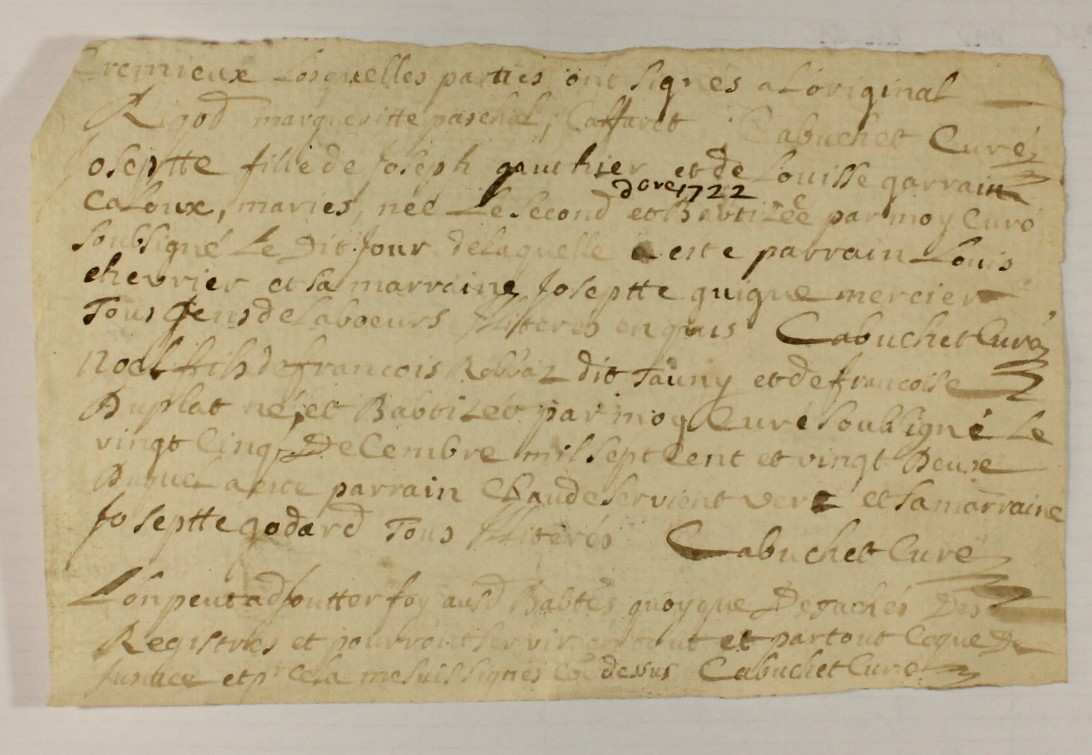 Cremieux Lesquelles parties ont signés a Loriginal
Rigod margueritte paschal, Caffaret Cabuchet Curé
oseptte fille de Joseph gauthier et de Louisse garrain
xbre 1722
Caloux, mariés, née Le second et Babtizée par moy Curé
soubsigné Le Dit jour delaquelle a esté parrain Louis
chevrier et sa marraine Joseptte guigue mercier
Tous gens de Laboeurs Illiterés enquis Cabuchet Curé
Noel fils de francois dit Tauny et de francoise
Duplat né, et Babtizét par moy Curé soubsigné Le
vingt Cinq DeCembre mil sept Cent et vingt Deux
Duquel a esté parrain Claude servient et sa marraine
Joseptte godard Tous Illiterés Cabuchet Curé
Lon peut adjoutter foy ausd Babtes quoyque Detachés Des
Registres et pourront servir en tout et partout Ceque De
Justice et pr Cela me suis signés Coe dessus Cabuchet Curé